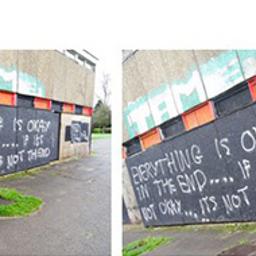 G IS OKAY
.... IF IT'S
IS NOT THE END
TAME
EVERYTHING IS O
IN THE END.... IF
NOT OKAY.... ITS NOT